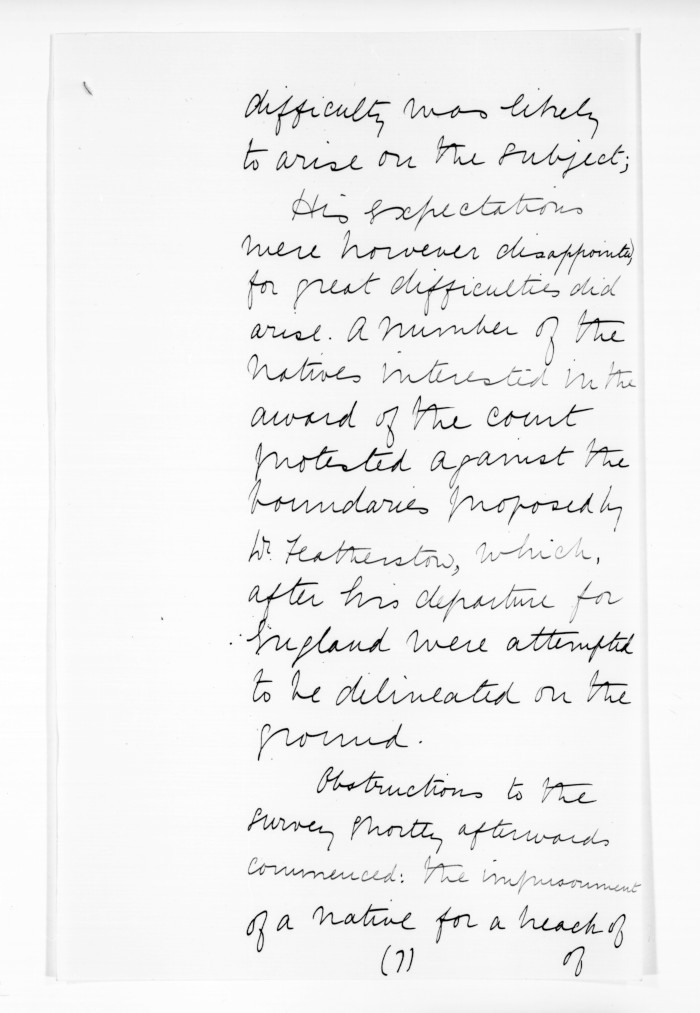 difficulty was likely
to arise on the subject;
His expectations
were however disappointed,
for great difficulties did
arise. A number of the
natives interested in the
award of the court
protested against the
boundaries proposed by
Dr. Featherston, which,
after his departure for
England were attempted
to be delineated on the
ground.
Obstructions to the
survey shortly afterwards
commenced: the imprisonment
of a native for a breach of
(7) of